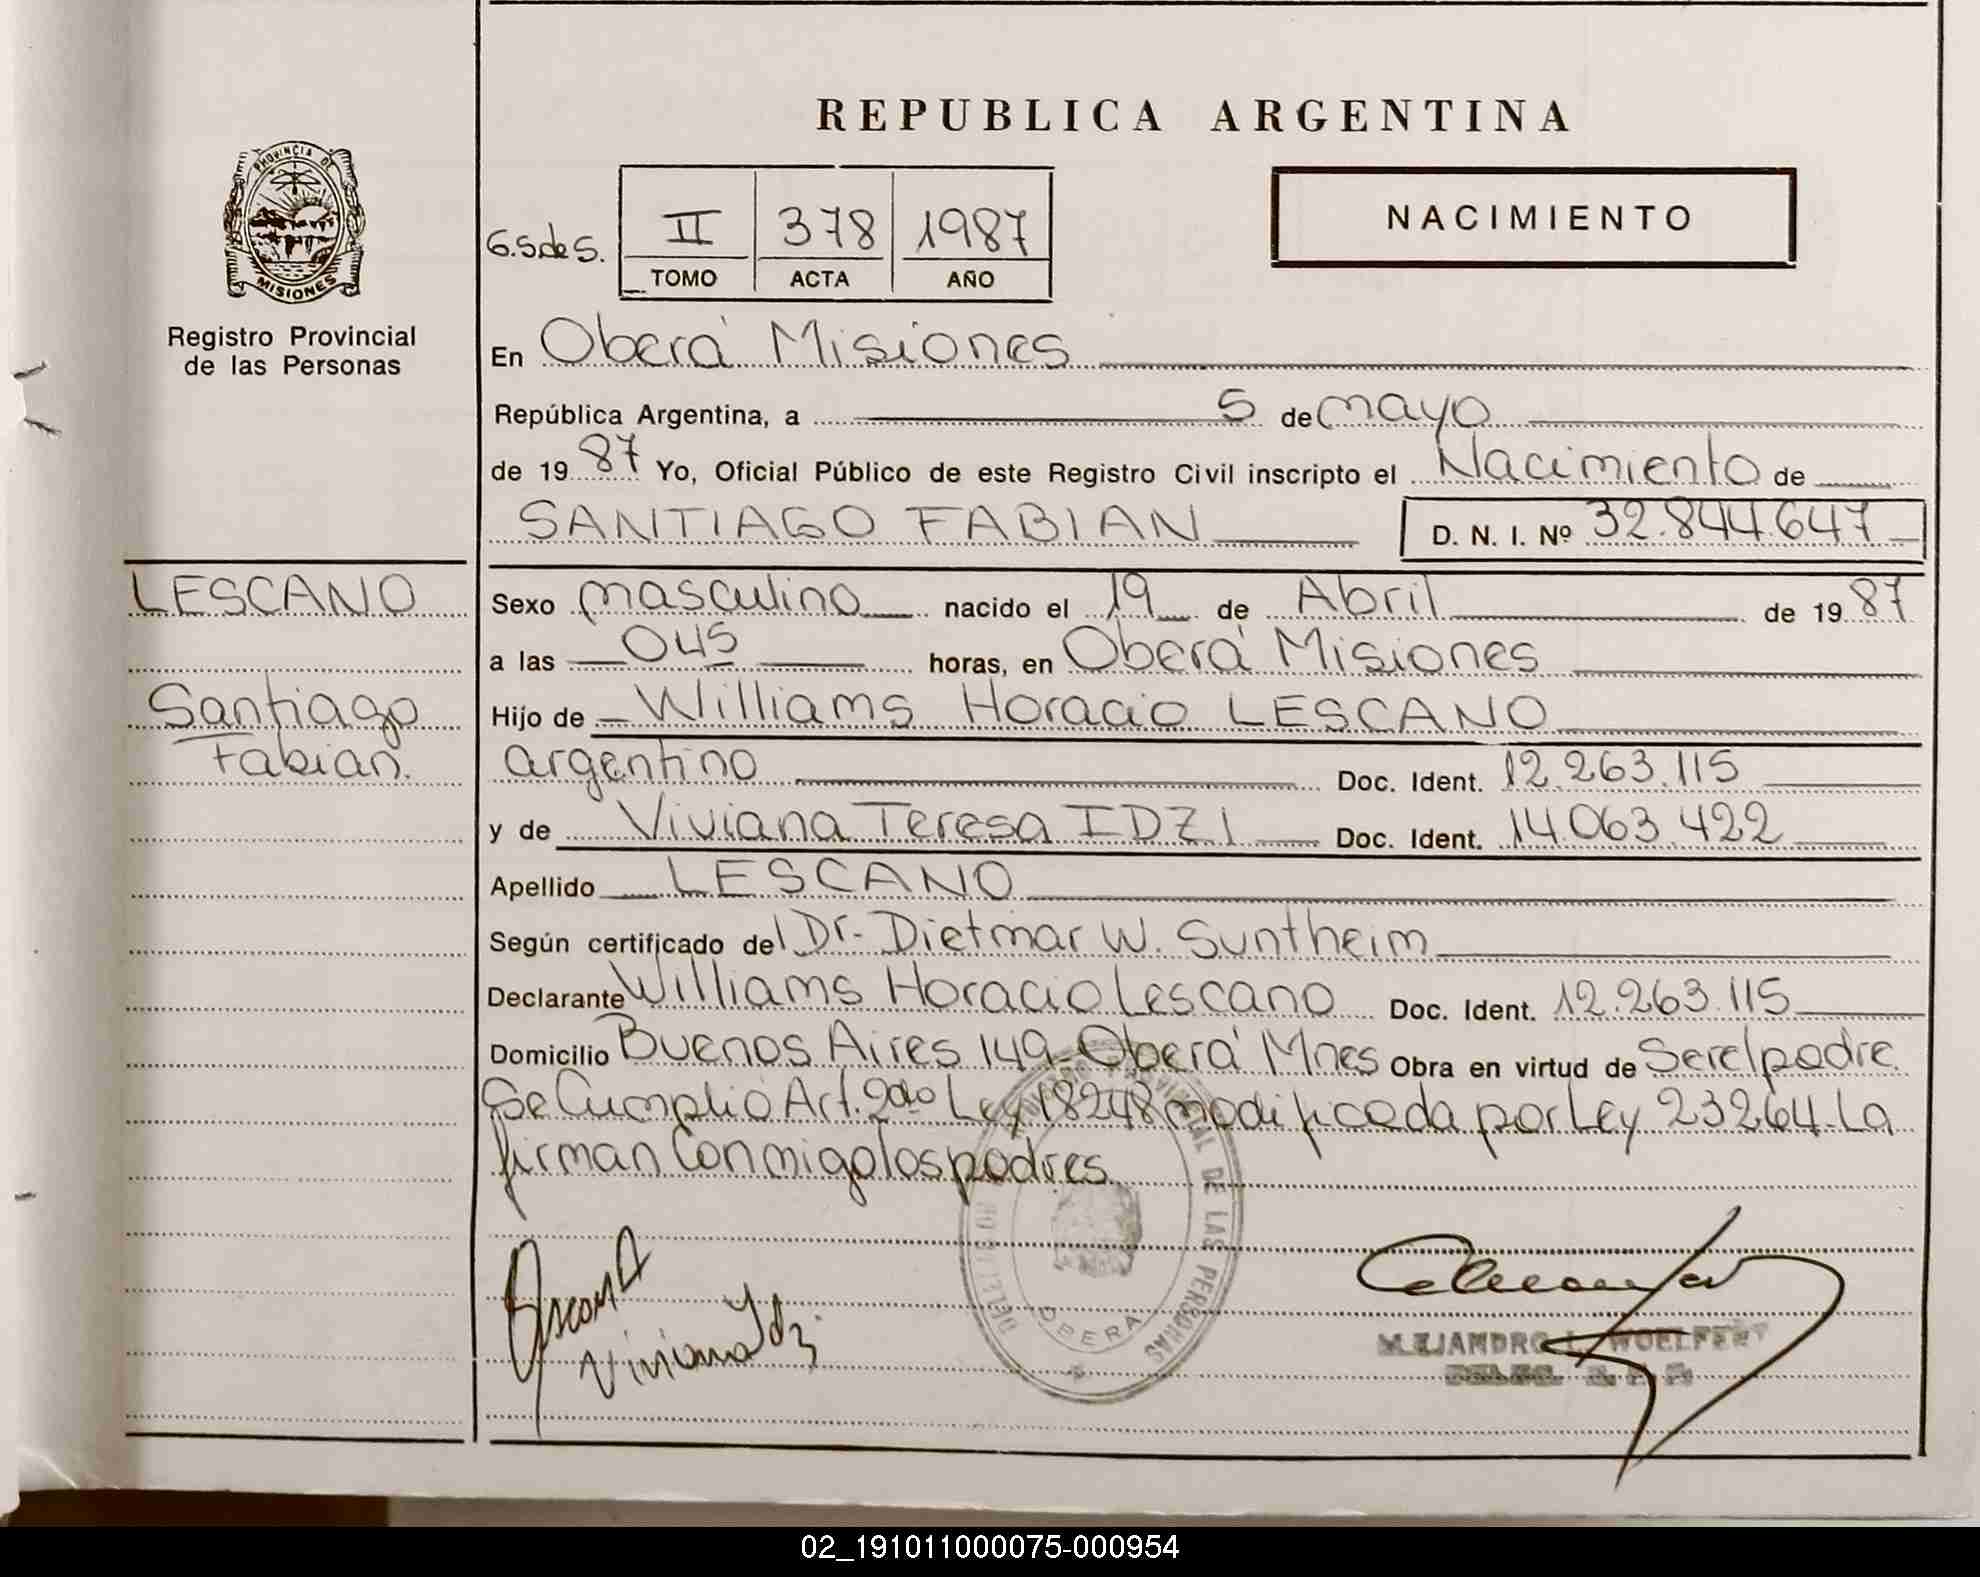 REPUBLICA ARGENTINA
PROVINCIA DE
MISIONES
Registro Provincial
de las Personas
G.S.deS.
II 378 1987
TOMO ACTA AÑO
NACIMIENTO
En Oberá Misiones
República Argentina, a 5 de mayo
de 1987 Yo, Oficial Público de este Registro Civil inscripto el Nacimiento de
SANTIAGO FABIAN D. N. I. Nº 32.844.647
LESCANO
Santiago
Fabian.
Sexo masculino nacido el 19 de Abril de 1987
a las 045 horas, en Oberá Misiones
Hijo de Williams Horacio LESCANO
argentino Doc. Ident. 12.263.115
y de Viviana Teresa IDZI Doc. Ident. 14.063.422
Apellido LESCANO
Según certificado del Dr. Dietmar W. Suntheim
Declarante Williams Horacio Lescano Doc. Ident. 12.263.115
Domicilio Buenos Aires 149-Oberá Mnes Obra en virtud de Ser el padre
Se Cumplio Art. 2do Ley 18248 modificada por Ley 23264. La
firman Conmigo los padres
DE LAS PERSONAS
OBERA
Viviana Idzi
WOELFERT
02_191011000075-000954